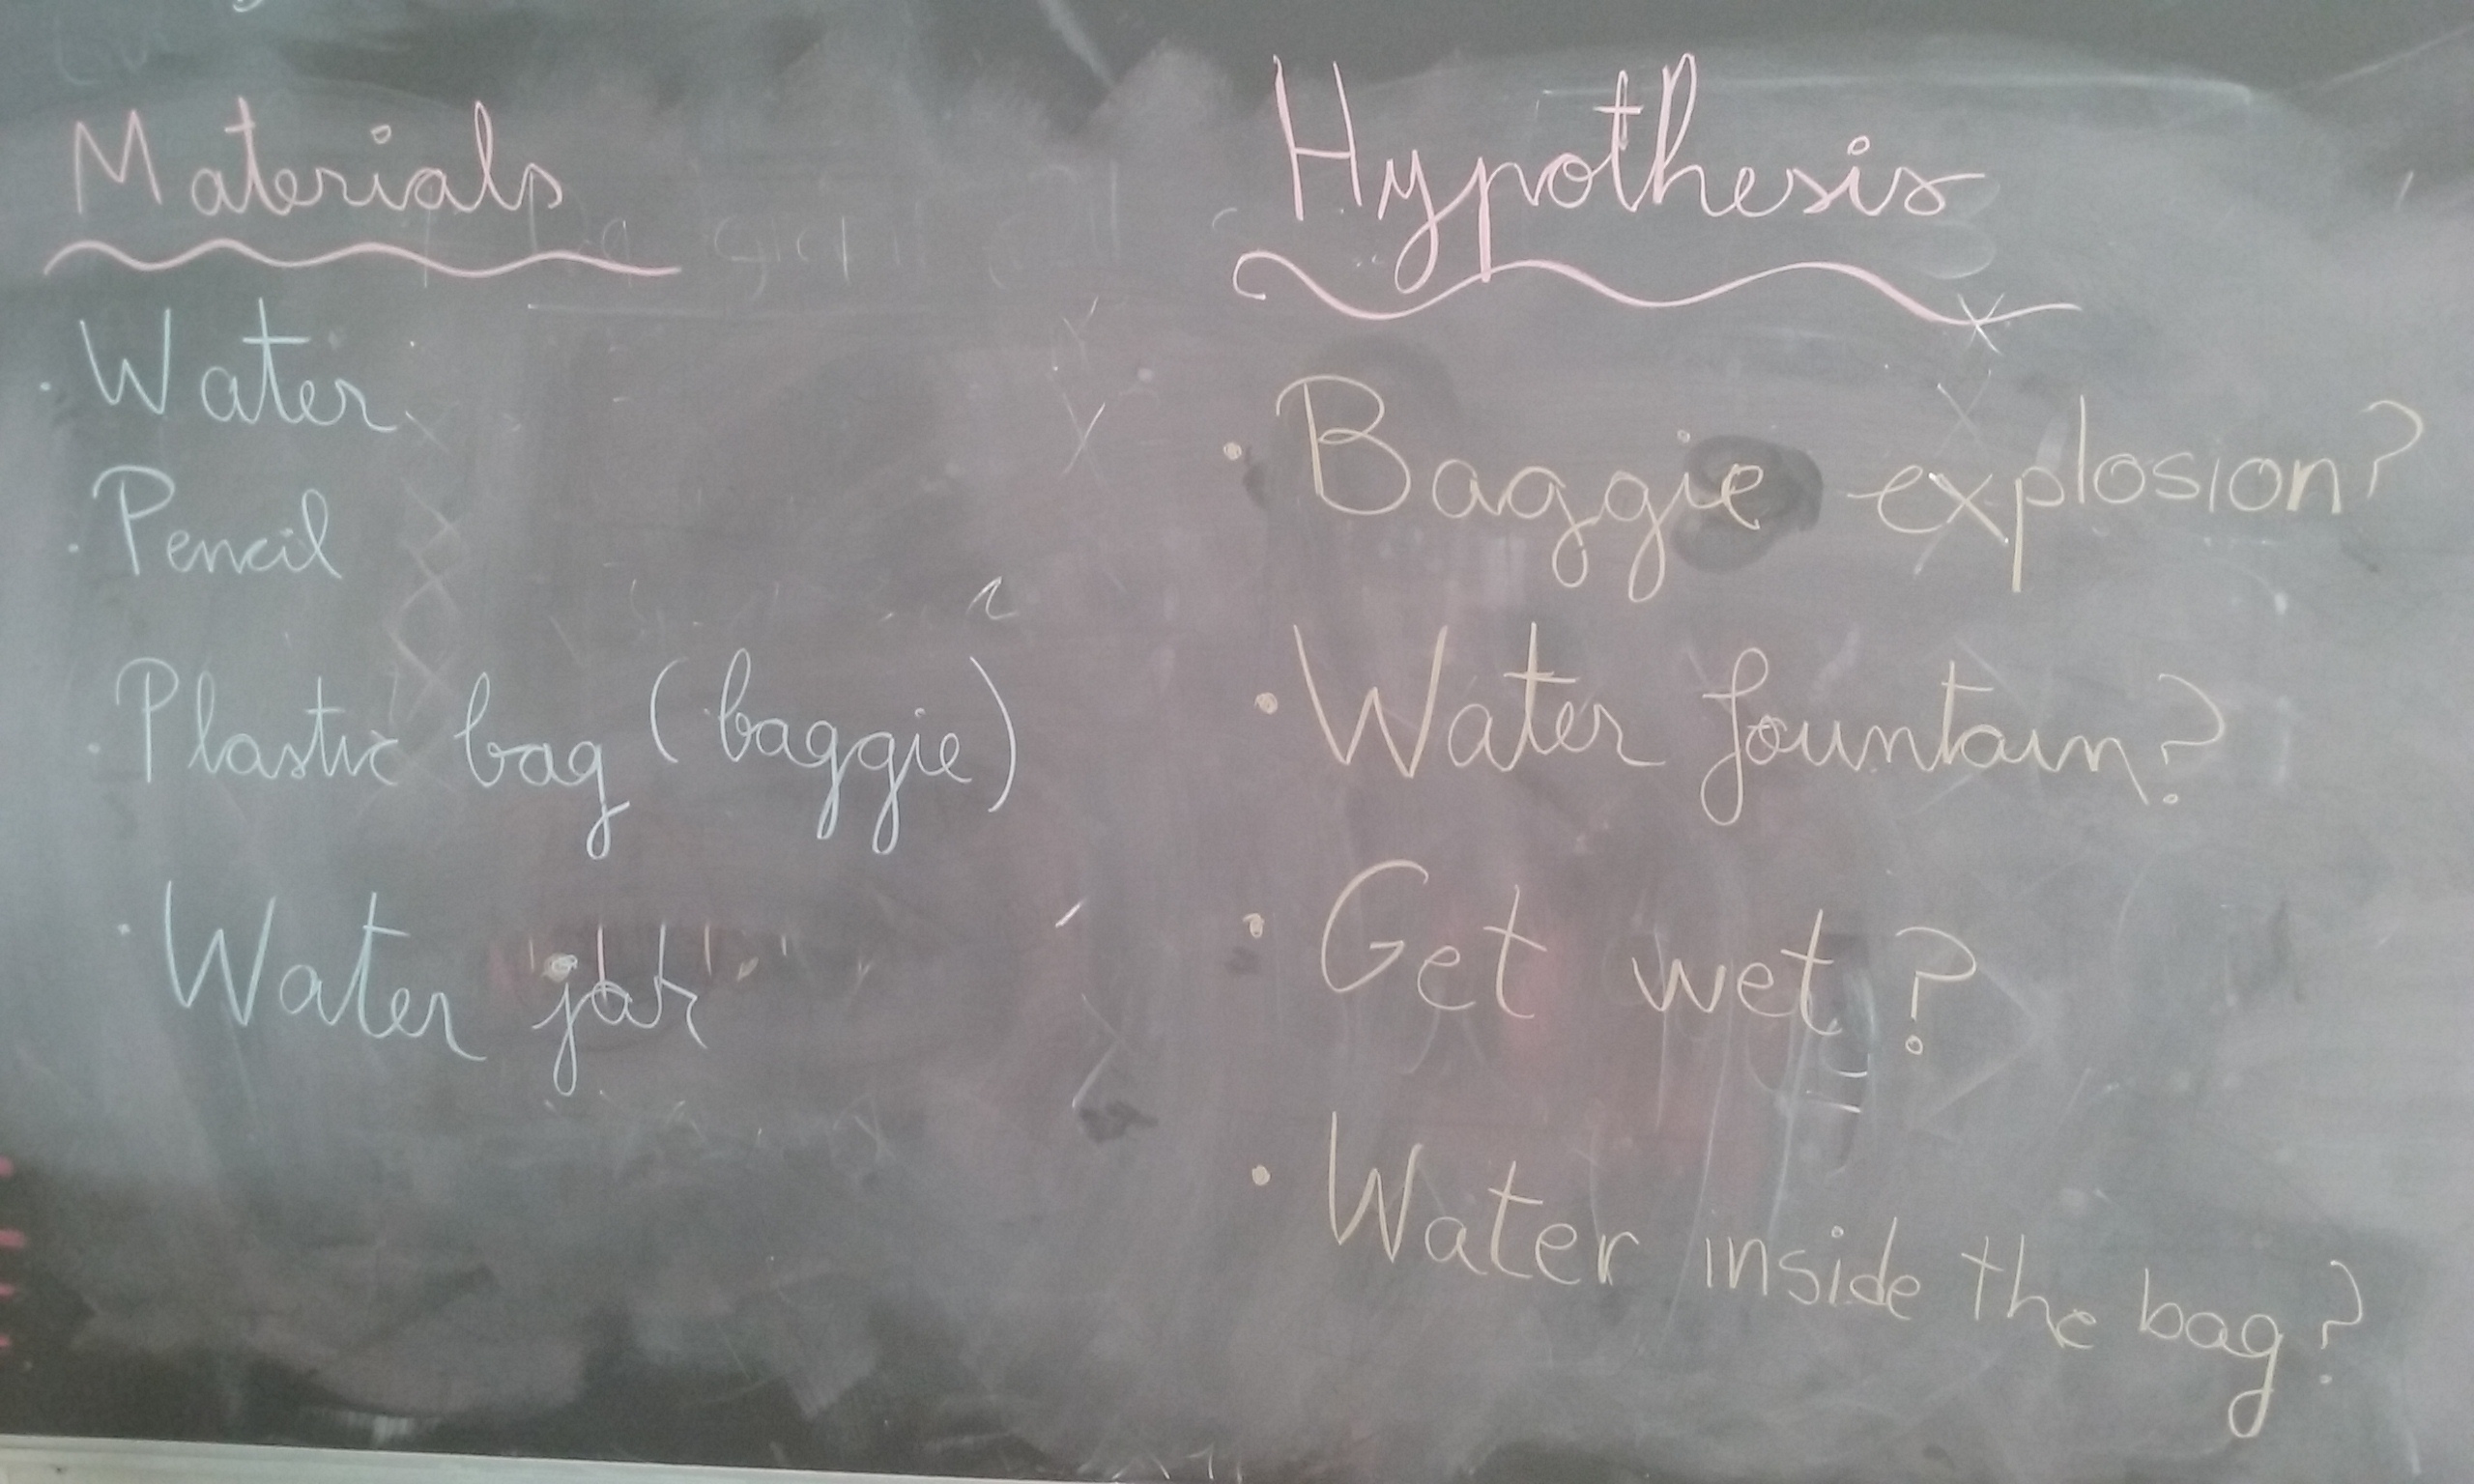 Materials
· Water
· Pencil
· Plastic bag (baggie)
· Water jar
Hypothesis
· Baggie explosion?
· Water fountain?
· Get wet?
· Water inside the bag?